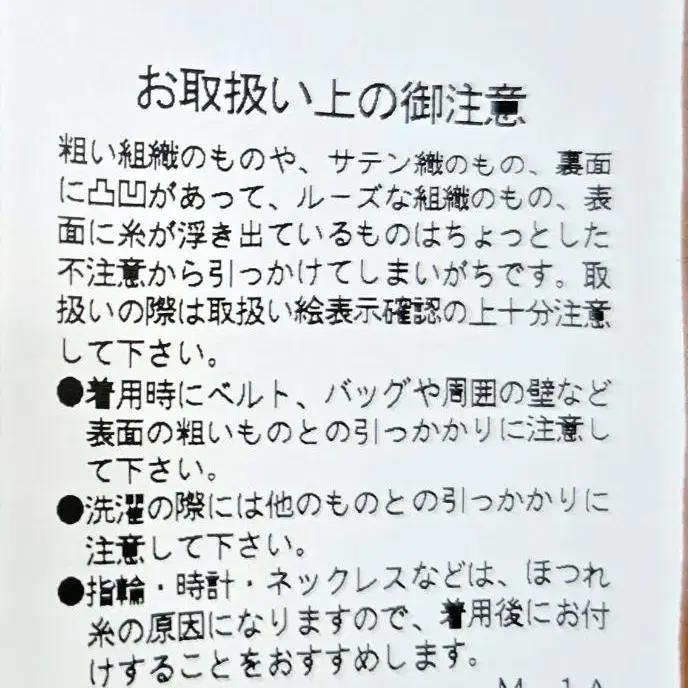 お取扱い上の御注意
粗い組織のものや、サテン織のもの、裏面
に凸凹があって、ルーズな組織のもの、表
面に糸が浮き出ているものはちょっとした
不注意から引っかけてしまいがちです。取
扱いの際は取扱い絵表示確認の上十分注意
して下さい。
●着用時にベルト、バッグや周囲の壁など
表面の粗いものとの引っかかりに注意し
て下さい。
●洗濯の際には他のものとの引っかかりに
注意して下さい。
●指輪・時計・ネックレスなどは、ほつれ
糸の原因になりますので、着用後にお付
けすることをおすすめします。